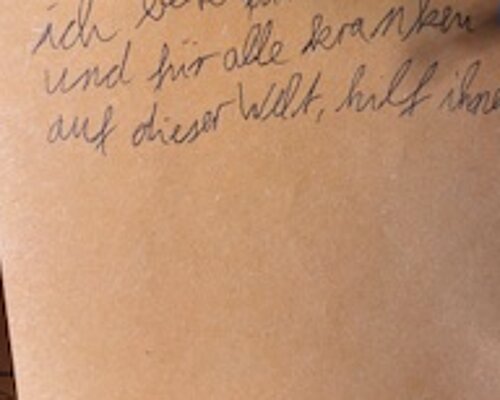 ich bete
und für alle Kranken
auf dieser Welt, hilf ihne